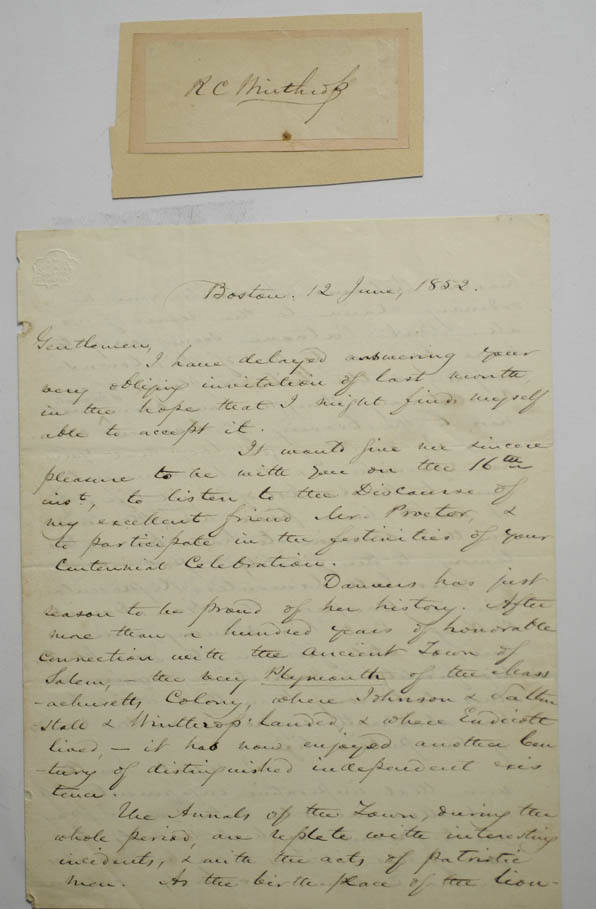 R C Winthrop
Boston. 12 June, 1852.
Gentlemen,
I have delayed answering your
very obliging invitation of last month,
in the hope that I might find myself
able to accept it.
It would give me sincere
pleasure to be with you on the 16th
inst, to listen to the Discourse of
my excellent friend Mr. Proctor, &
to participate in the festivities of your
Centennial Celebration.
Danvers has just
reason to be proud of her history. After
more than a hundred years of honorable
connection with the Ancient Town of
Salem, – the very Plymouth of the Mass
achusetts Colony, where Johnson & Salton
stall & Winthrop landed, & where Endicott
lived, – it has now enjoyed another Cen
tury of distinguished independent exis
tence.
The Annals of the Town, during the
whole period, are replete with interesting
incidents, & with the acts of patriotic
men. As the birth-place of the lion-